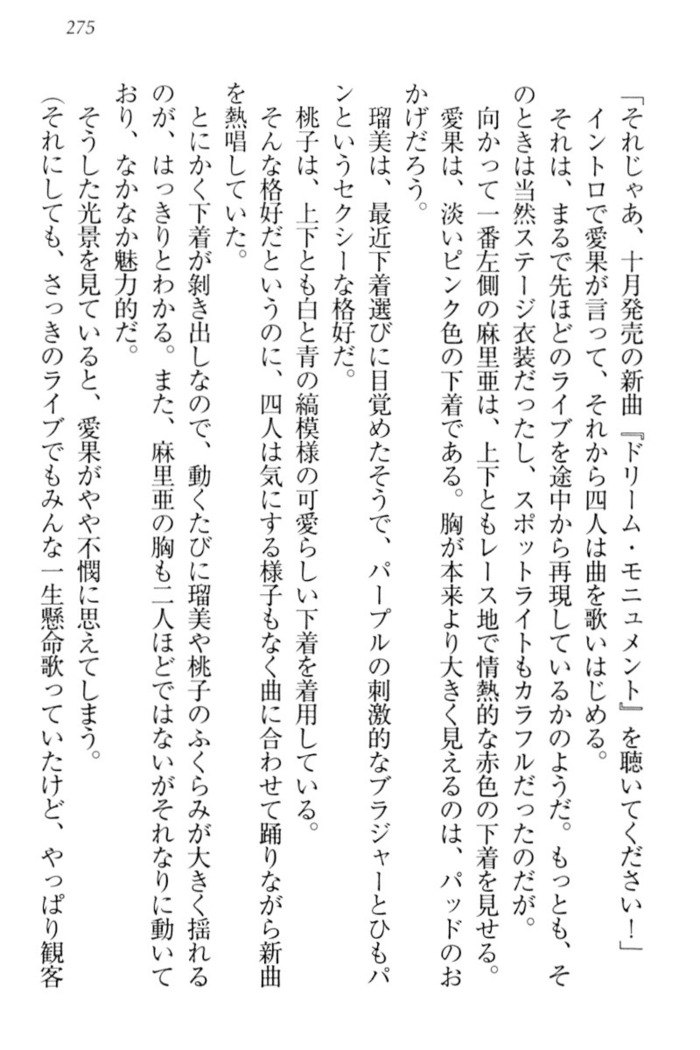 275
「それじゃあ、十月発売の新曲『ドリーム・モニュメント』を聴いてください！」
イントロで愛果が言って、それから四人は曲を歌いはじめる。
それは、まるで先ほどのライブを途中から再現しているかのようだ。もっとも、そ
のときは当然ステージ衣装だったし、スポットライトもカラフルだったのだが。
向かって一番左側の麻里亜は、上下ともレース地で情熱的な赤色の下着を見せる。
愛果は、淡いピンク色の下着である。胸が本来より大きく見えるのは、パッドのお
かげだろう。
瑠美は、最近下着選びに目覚めたそうで、パープルの刺激的なブラジャーとひもパ
ンというセクシーな格好だ。
桃子は、上下とも白と青の縞模様の可愛らしい下着を着用している。
そんな格好だというのに、四人は気にする様子もなく曲に合わせて踊りながら新曲
を熱唱していた。
とにかく下着が剥き出しなので、動くたびに瑠美や桃子のふくらみが大きく揺れる
のが、はっきりとわかる。また、麻里亜の胸も二人ほどではないがそれなりに動いて
おり、なかなか魅力的だ。
そうした光景を見ていると、愛果がやや不憫に思えてしまう。
（それにしても、さっきのライブでもみんな一生懸命歌っていたけど、やっぱり観客